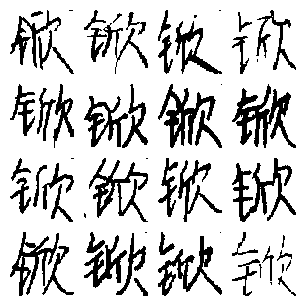 锨锨锨锨
锨锨锨锨
锨锨锨锨
锨锨锨锨